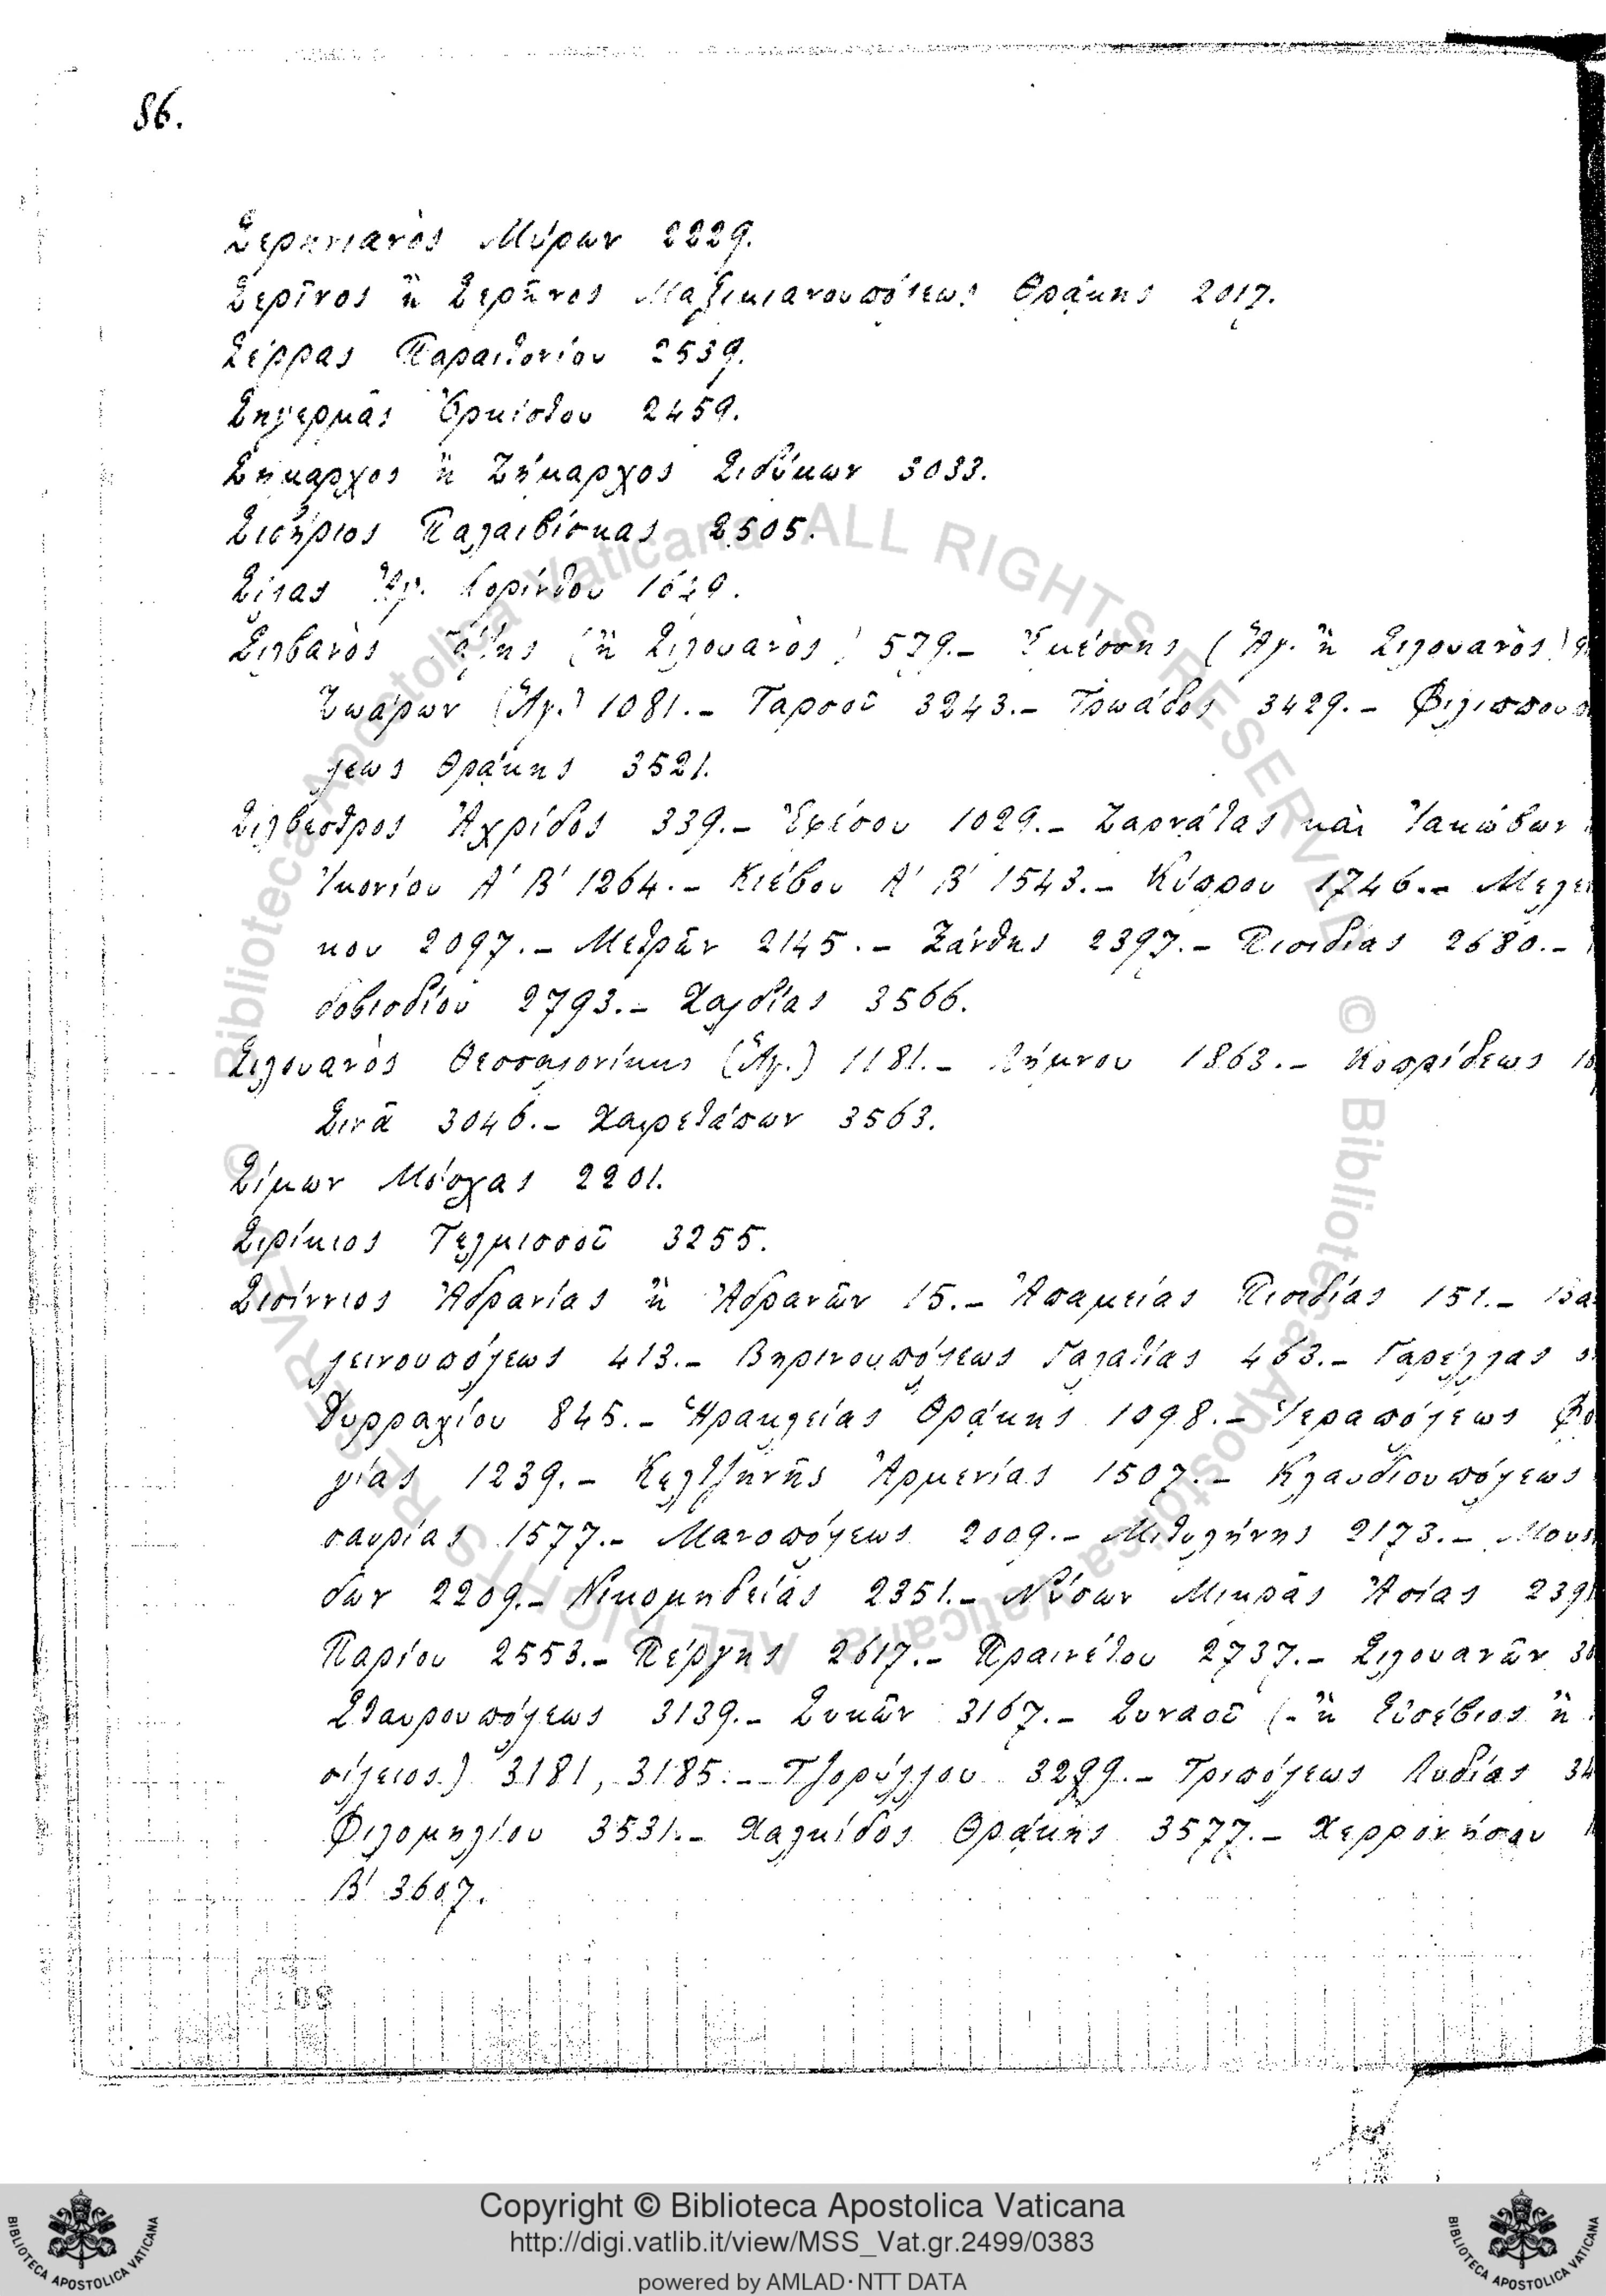 86.
Σερηνιανὸς Μύρων 2229.
Σερῖνος ἢ Σερῆνος Μαξιμιανουπόλεως Θράκης 2017.
Σέρρας Παραιτονίου 2539.
Σηγερμᾶς Ὀρκίστου 2459.
Σήμαρχος ἢ Ζήμαρχος Σιδύμων 3033.
Παλαιβίσκας 2505.
Σίλας Ἅγ. Κορίνθου 1629.
Σιλβανὸς Γάζης (ἢ Σιλουανὸς) 579.- Ἐμέσσης (Ἅγ. ἢ Σιλουανὸς)
Ζωάρων (Ἅγ.) 1081.- Ταρσοῦ 3243.- Τρωάδος 3429.- Φιλιππουπό
λεως Θράκης 3521.
Σίλβεστρος Ἀχρίδος 339.- Ἐφέσου 1029.- Ζαρνάτας καὶ
Ἰκονίου Α' Β' 1264.- Κιέβου Α' Β' 1543.- Κύπρου 1746.- Μελε
κου 2097.- Μετρῶν 2145.- Ξάνθης 2397.- Πισιδίας 2680.-
2793.- Χαλδίας 3566.
Σιλουανὸς Θεσσαλονίκης (Ἅγ.) 1181.- Λήμνου 1863.-
Σινᾶ 3046.- Χαιρετάπων 3563.
Σίμων Μόσχας 2201.
Σιρίκιος Τελμισσοῦ 3255.
Σισίννιος Ἀδρανίας ἢ Ἀδρανῶν 15.- Ἀπαμείας Πισιδίας 151.- Βα
λεινουπόλεως 413.- Βηρινουπόλεως Γαλατίας 463.- Γαρέλλας
Δυρραχίου 845.- Ἡρακλείας Θράκης 1098.- Ἱεραπόλεως Φρ
γίας 1239.- Κελτζηνῆς Ἀρμενίας 1507.- Κλαυδιουπόλεως
σαυρίας 1577.- Μανοπόλεως 2009.- Μιτυλήνης 2173.- Μουσ
δων 2209.- Νικομηδείας 2351.- Νύσων Μικρᾶς Ἀσίας 239
Παρίου 2553.- Πέργης 2617.- Πραινέτου 2737.- Σιλουανῶν
Σταυρουπόλεως 3139.- Συκῶν 3167.- Συναοῦ (- ἢ Εὐσέβιος ἢ
σίλειος) 3181, 3185.- Τζορύλλου 3299.- Τριπόλεως Λυδίας 34
Φιλομηλίου 3531.- Χαλκίδος Θράκης 3577.- Χερρονήσου
Β' 3607.
© Biblioteca Apostolica Vaticana ALL RIGHTS RESERVED
Copyright © Biblioteca Apostolica Vaticana
http://digi.vatlib.it/view/MSS_Vat.gr.2499/0383
powered by AMLAD·NTT DATA
BIBLIOTECA APOSTOLICA VATICANA
BIBLIOTECA APOSTOLICA VATICANA